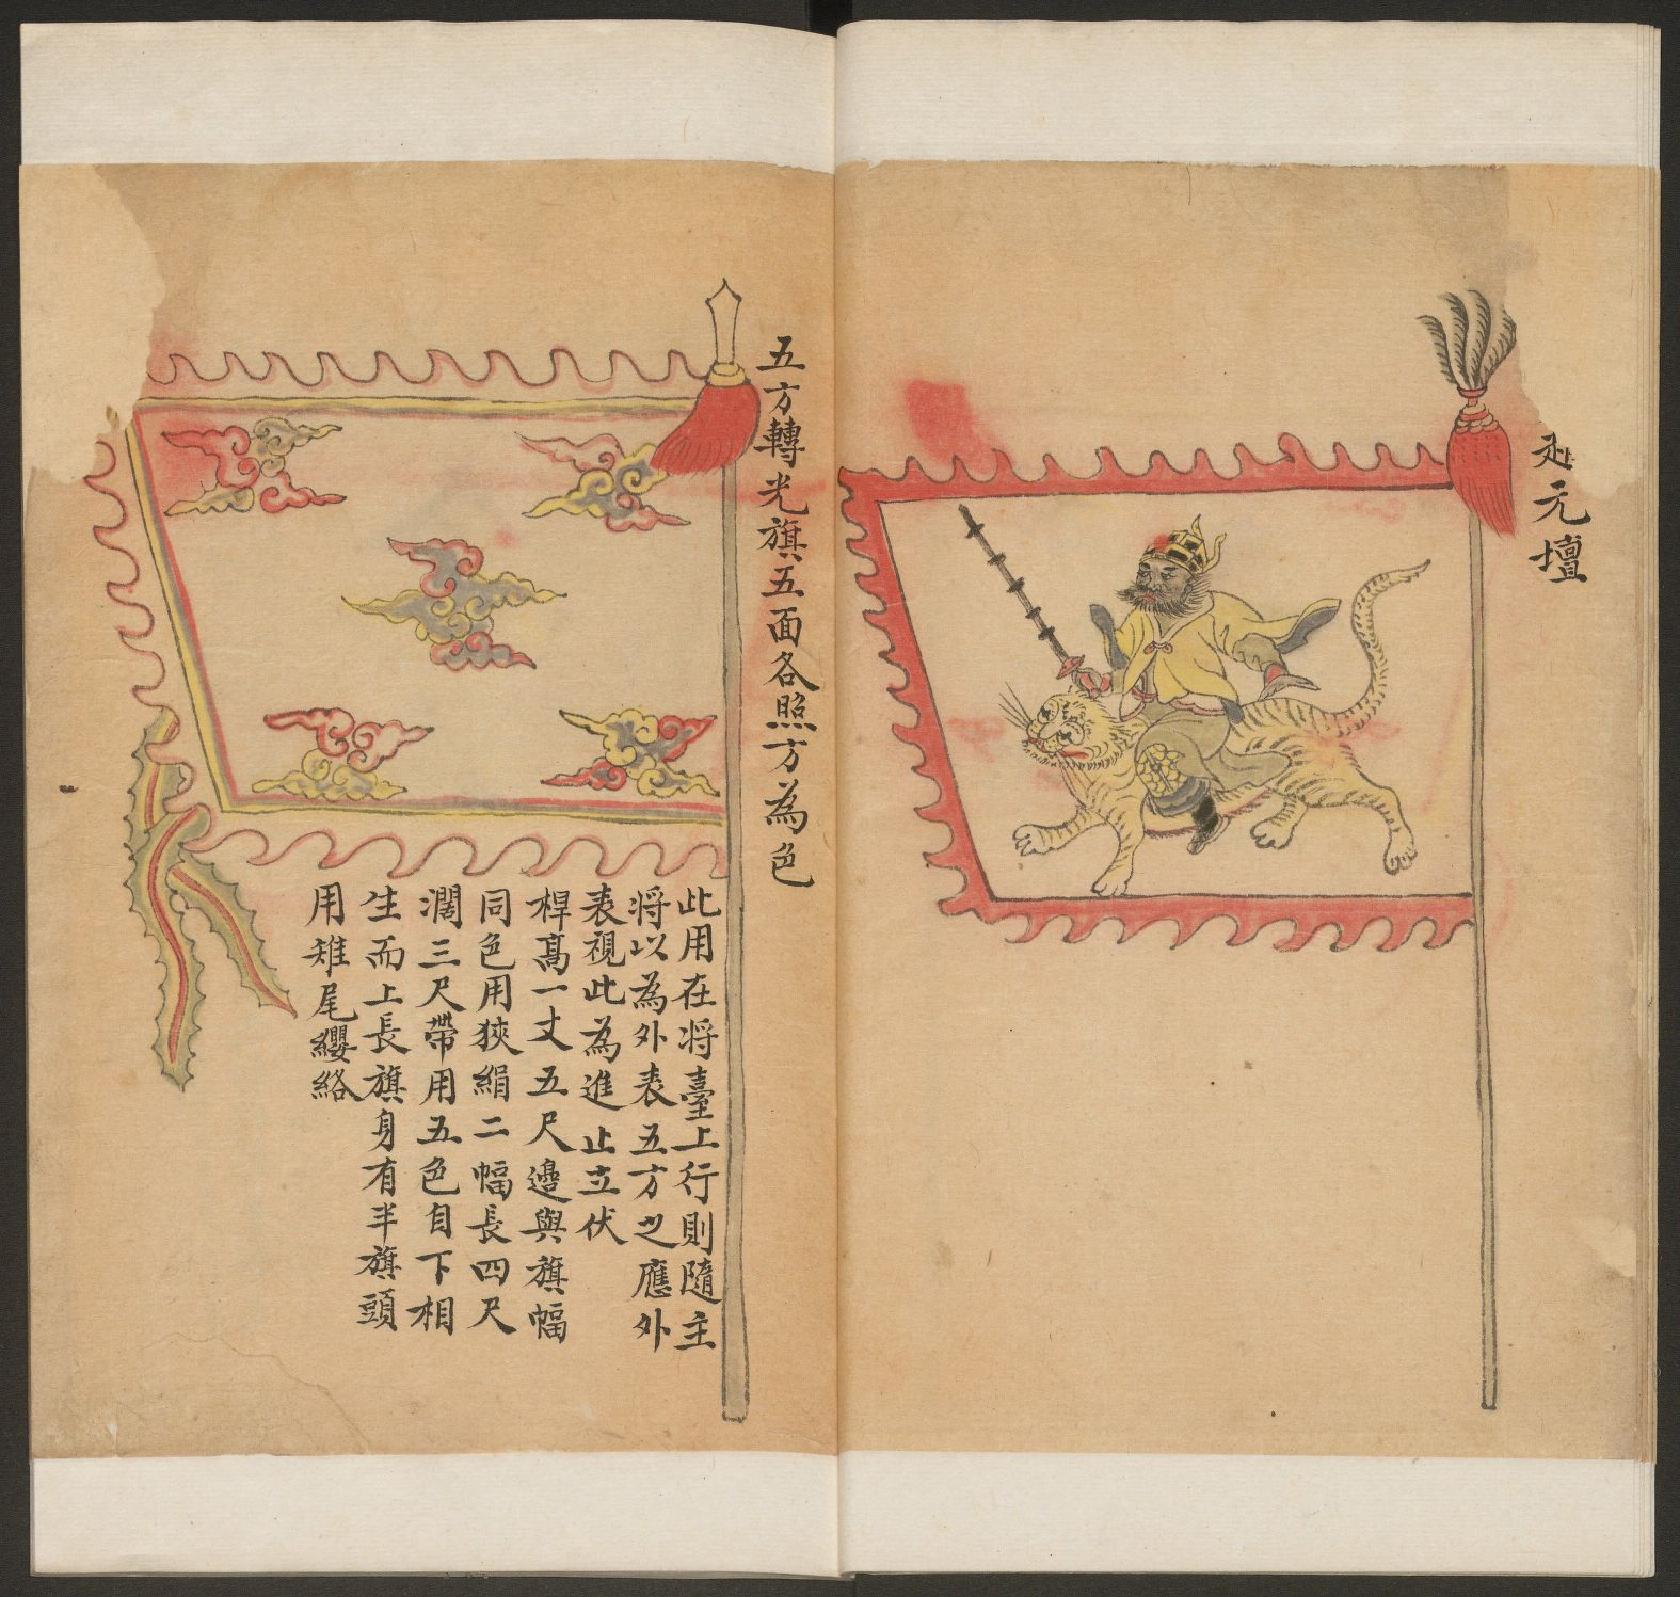 元壇
五方轉光旗五面各照方為色
此用在将臺上行則隨主
将以為外表五方之應外
表視此為進止立伏
桿髙一丈五尺邊與旗幅
同色用狹絹二幅長四尺
濶三尺帶用五色自下相
生而上長旗身有半旗頭
用雉尾纓絡